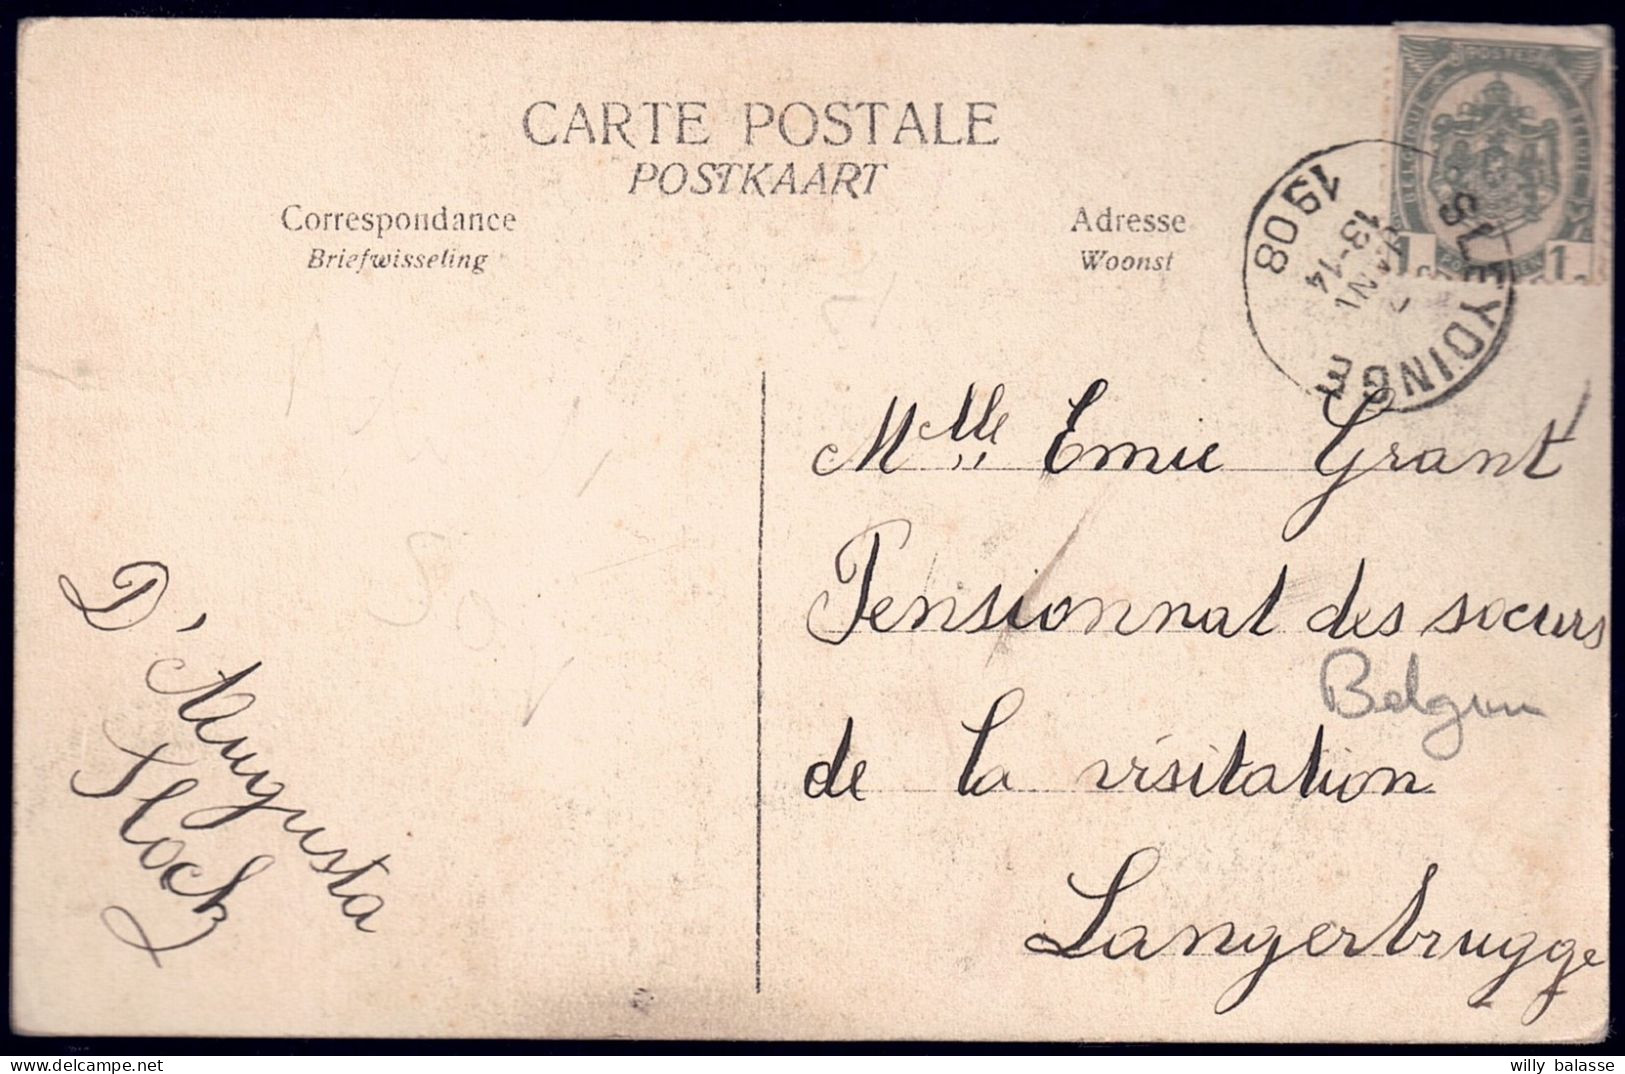 CARTE POSTALE
POSTKAART
Correspondance
Briefwisseling
Adresse
Woonst
POSTES
BELGIQUE
BELGIE
1
1
SLEYDINGE
JANV
13-14
1908
Mlle Emie Grant
Pensionnat des soeurs
Belgium
de la visitation
Langerbrugge
D'Augusta
willy balasse